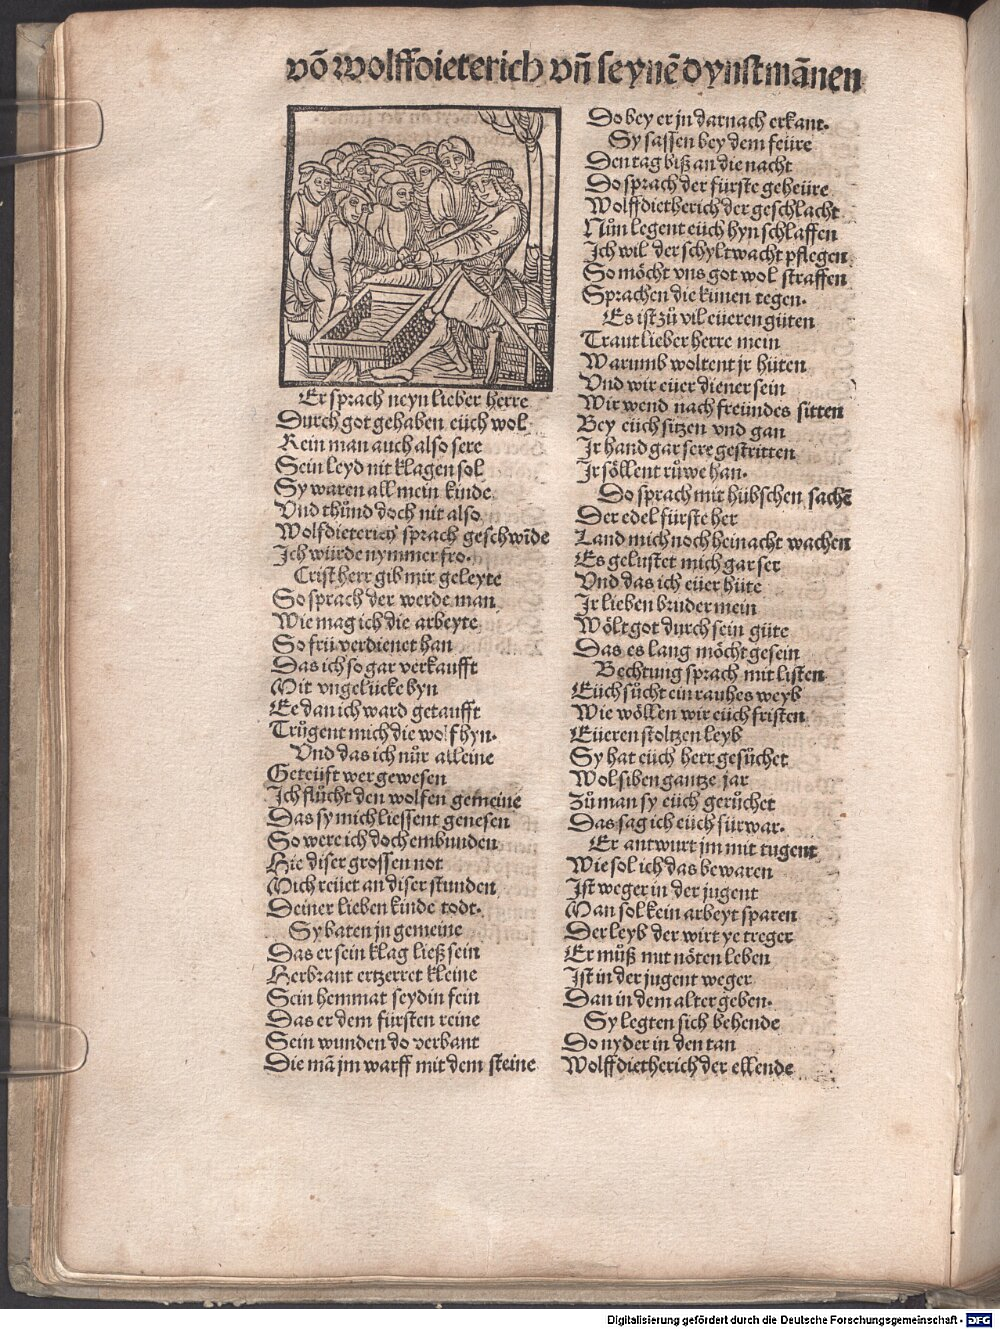 võ wolffdieterich vñ seynē dynstmãnen
Er sprach neyn lieber herre
Durch got gehaben eüch wol
Kein man auch also sere
Sein leyd nit klagen sol
Sy waren all mein kinde
Vnd thůnd doch nit also
Wolfdieterich sprach geschwĩde
Ich würde nymmer fro.
Crist herr gib mir geleyte
So sprach der werde man
Wie mag ich die arbeyte
So frü verdienet han
Das ich so gar verkaufft
Mit vngelücke byn
Ee dan ich ward getaufft
Trůgent mich die wolf hyn.
Vnd das ich nůr alleine
Geteüft wer gewesen
Ich flůcht den wolfen gemeine
Das sy mich liessent genesen
So were ich doch embunden
Hie diser grossen not
Mich reüet an diser stunden
Deiner lieben kinde todt.
Sy baten jn gemeine
Das er sein klag ließ sein
Herbrant ertzerret kleine
Sein hemmat seydin fein
Das er dem fürsten reine
Sein wunden do verbant
Die mã jm warff mit dem steine
Do bey er jn darnach erkant.
Sy sassen bey dem feüre
Den tag biß an die nacht
Do sprach der fürste geheüre
Wolffdietherich der geschlacht
Nůn legent eüch hyn schlaffen
Ich wil der schyltwacht pflegen
So möcht vns got wol straffen
Sprachen die künen tegen.
Es ist zů vil eüeren güten
Traut lieber herre mein
Warumb woltent jr hüten
Vnd wir eüer diener sein
Wir wend nach freündes sitten
Bey eüch sitzen vnd gan
Ir hand gar sere gestritten
Ir söllent růwe han.
Do sprach mit hübschen sachē
Der edel fürste her
Land mich noch heinacht wachen
Es gelustet mich gar ser
Vnd das ich eüer hüte
Ir lieben bruder mein
Wölt got durch sein güte
Das es lang möcht gesein
Bechtung sprach mit listen
Eüch sůcht ein rauhes weyb
Wie wöllen wir eüch fristen
Eüeren stoltzen leyb
Sy hat eüch herr gesůchet
Wol siben gantze jar
Zů man sy eüch gerůchet
Das sag ich eüch fürwar.
Er antwurt jm mit tugent
Wie sol ich das bewaren
Ist weger in der jugent
Man sol kein arbeyt sparen
Der leyb der wirt ye treger
Er můß mit nöten leben
Ist in der jugent weger
Dan in dem alter geben.
Sy legten sich behende
Do nyder in den tan
Wolffdietherich der ellende
Digitalisierung gefördert durch die Deutsche Forschungsgemeinschaft - DFG